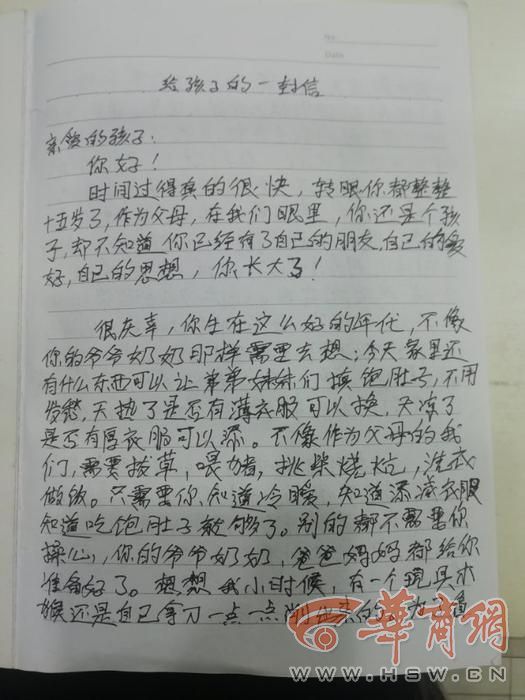 No.
Date
给孩子的一封信
亲爱的孩子:
你好!
时间过得真的很快,转眼你都整整
十五岁了,作为父母,在我们眼里,你还是个孩
子,却不知道你已经有了自己的朋友,自己的爱
好,自己的思想,你长大了!
很庆幸,你生在这么好的年代,不像
你的爷爷奶奶那样需要去想:今天家里还
有什么东西可以让弟弟妹妹们填饱肚子,不用
发愁,天热了是否有薄衣服可以换,天凉了
是否有厚衣服可以添。不像作为父母的我
们,需要拔草,喂猪,挑柴烧炕,洗衣
做饭。只需要你知道冷暖,知道添减衣服
知道吃饱肚子就够了。别的都不需要你
操心,你的爷爷奶奶,爸爸妈妈都给你
准备好了。想想我小时候,有一个玩具木
猴还是自己拿刀一点一点削出来的
华商网
WWW.HSW.CN